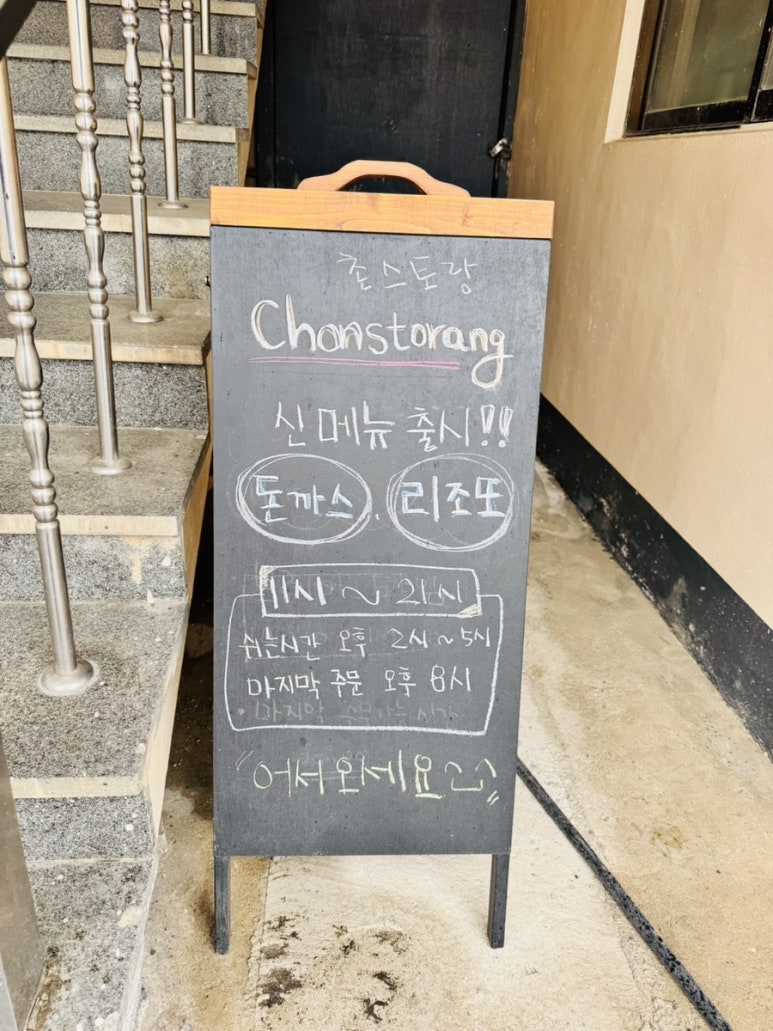 촌스토랑
Chonstorang
신메뉴 출시!!
돈까스, 리조또
11시 ~ 21시
쉬는시간 오후 2시~5시
마지막 주문 오후 8시
"어서오세요^^"